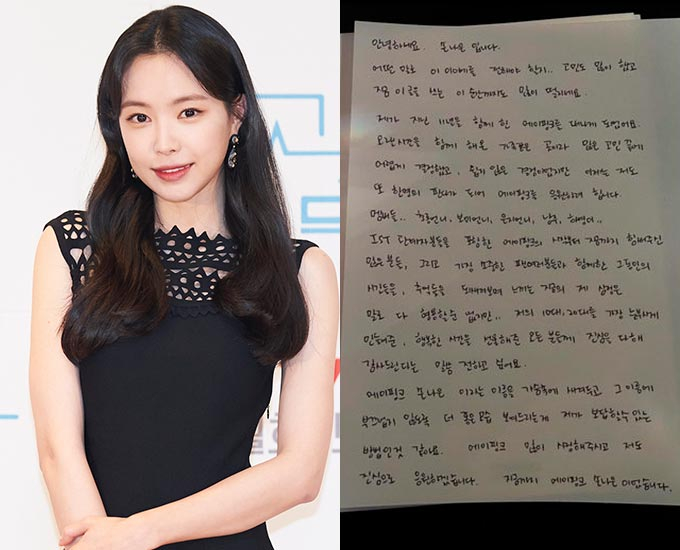 안녕하세요. 손나은 입니다.
어떤 말로 이 이야기를 전해야 할지.. 고민도 많이 했고
지금 이 글을 쓰는 이 순간까지도 많이 떨리네요.
제가 지난 11년을 함께 한 에이핑크를 떠나게 되었어요.
오랜시간을 함께 해온 가족같은 곳이라 많은 고민 끝에
어렵게 결정했고, 쉽지 않은 결정이었지만 이제는 저도
또 한명의 판다가 되어 에이핑크를 응원하려 합니다
멤버들.. 초롱언니, 보미언니, 은지언니, 남주, 하영이..
IST 관계자분들을 포함한 에이핑크의 시작부터 지금까지 함께해주신
많은 분들, 그리고 가장 소중한 팬여러분들과 함께한 그동안의
시간들을, 추억들을 되새겨보며 느끼는 지금의 제 심정은
말로 다 형용할 수 없지만.. 저의 10대, 20대를 가장 눈부시게
만들어준, 행복한 시간을 선물해준 모든 분들께 진심을 다해
감사드린다는 말씀 전하고 싶어요.
에이핑크 손나은 이라는 이름을 가슴속에 새겨두고, 그 이름에
부끄럽지 않도록 더 좋은 모습 보여드리는게 제가 보답할수 있는
방법인것 같아요. 에이핑크 많이 사랑해주시고 저도
진심으로 응원하겠습니다. 지금까지 에이핑크 손나은 이었습니다.